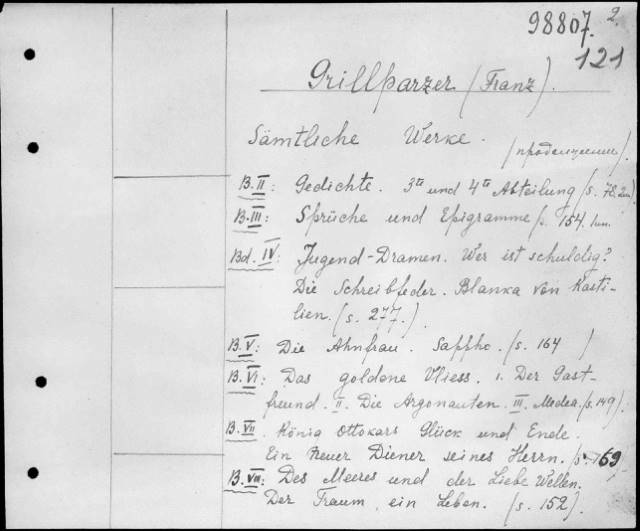 98807. 2.
121
Grillparzer (Franz).
Sämtliche Werke.
B. II: Gedichte. 3te und 4te Abteilung (S. 78.
B. III: Sprüche und Epigramme 154.
Bd. IV: Jugend-Dramen. Wer ist schuldig?
Die Schreibfeder. Blanka von Kasti-
lien. (s. 277.)
B. V: Die Ahnfrau. Sappho. (s. 164 )
B. VI: Das goldene Vliess. I. Der Gast-
freund. II. Die Argonauten. III. Medea. (s. 149).
B. VII. König Ottokars Glück und Ende.
Ein treuer Diener seines Herrn. (s. 169)
B. VIII: Des Meeres und der Liebe Wellen.
Der Traum, ein Leben. (s. 152).